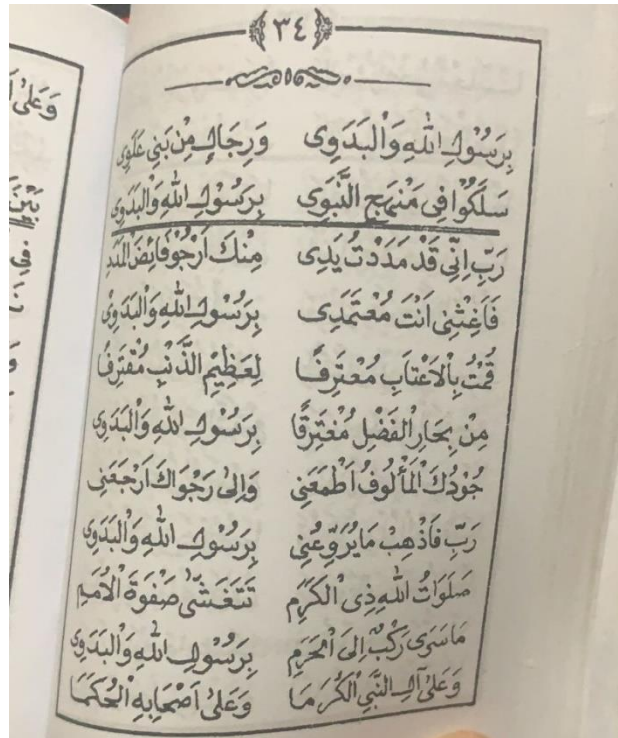 ٣٤
بِرَسُوْلِ اللهِ وَالْبَدَوِى وَرِجَالٍ مِنْ بَنِى عَلَوِى
سَلَكُوْا فِى مَنْهَجِ النَّبَوِى بِرَسُوْلِ اللهِ وَالْبَدَوِى
رَبِّ اِنِّى قَدْ مَدَدْتُ يَدِى مِنْكَ اَرْجُوْ فَائِضَ الْمَدَدِ
فَاَغِثْنِى اَنْتَ مُعْتَمَدِى بِرَسُوْلِ اللهِ وَالْبَدَوِى
قُمْتُ بِاْلاَعْتَابِ مُعْتَرِفًا لِعَظِيْمِ الذَّنْبِ مُقْتَرِفًا
مِنْ بِحَارِ الْفَضْلِ مُغْتَرِقًا بِرَسُوْلِ اللهِ وَالْبَدَوِى
جُوْدُكَ الْمَأْلُوْفُ اَطْمَعَنِى وَاِلىٰ رَجْوَاكَ اَرْجَعَنِى
رَبِّ فَاَذْهِبْ مَا يُرَوِّعُنِى بِرَسُوْلِ اللهِ وَالْبَدَوِى
صَلَوَاتُ اللهِ ذِى الْكَرَمِ تَتَغَشَّى صَفْوَةَ اْلاُمَمِ
مَا سَرَى رَكْبٌ اِلَى الْحَرَمِ بِرَسُوْلِ اللهِ وَالْبَدَوِى
وَعَلىٰ آلِ النَّبِيِ الْكُرَمَا وَعَلىٰ اَصْحَابِهِ الْحُكَمَا